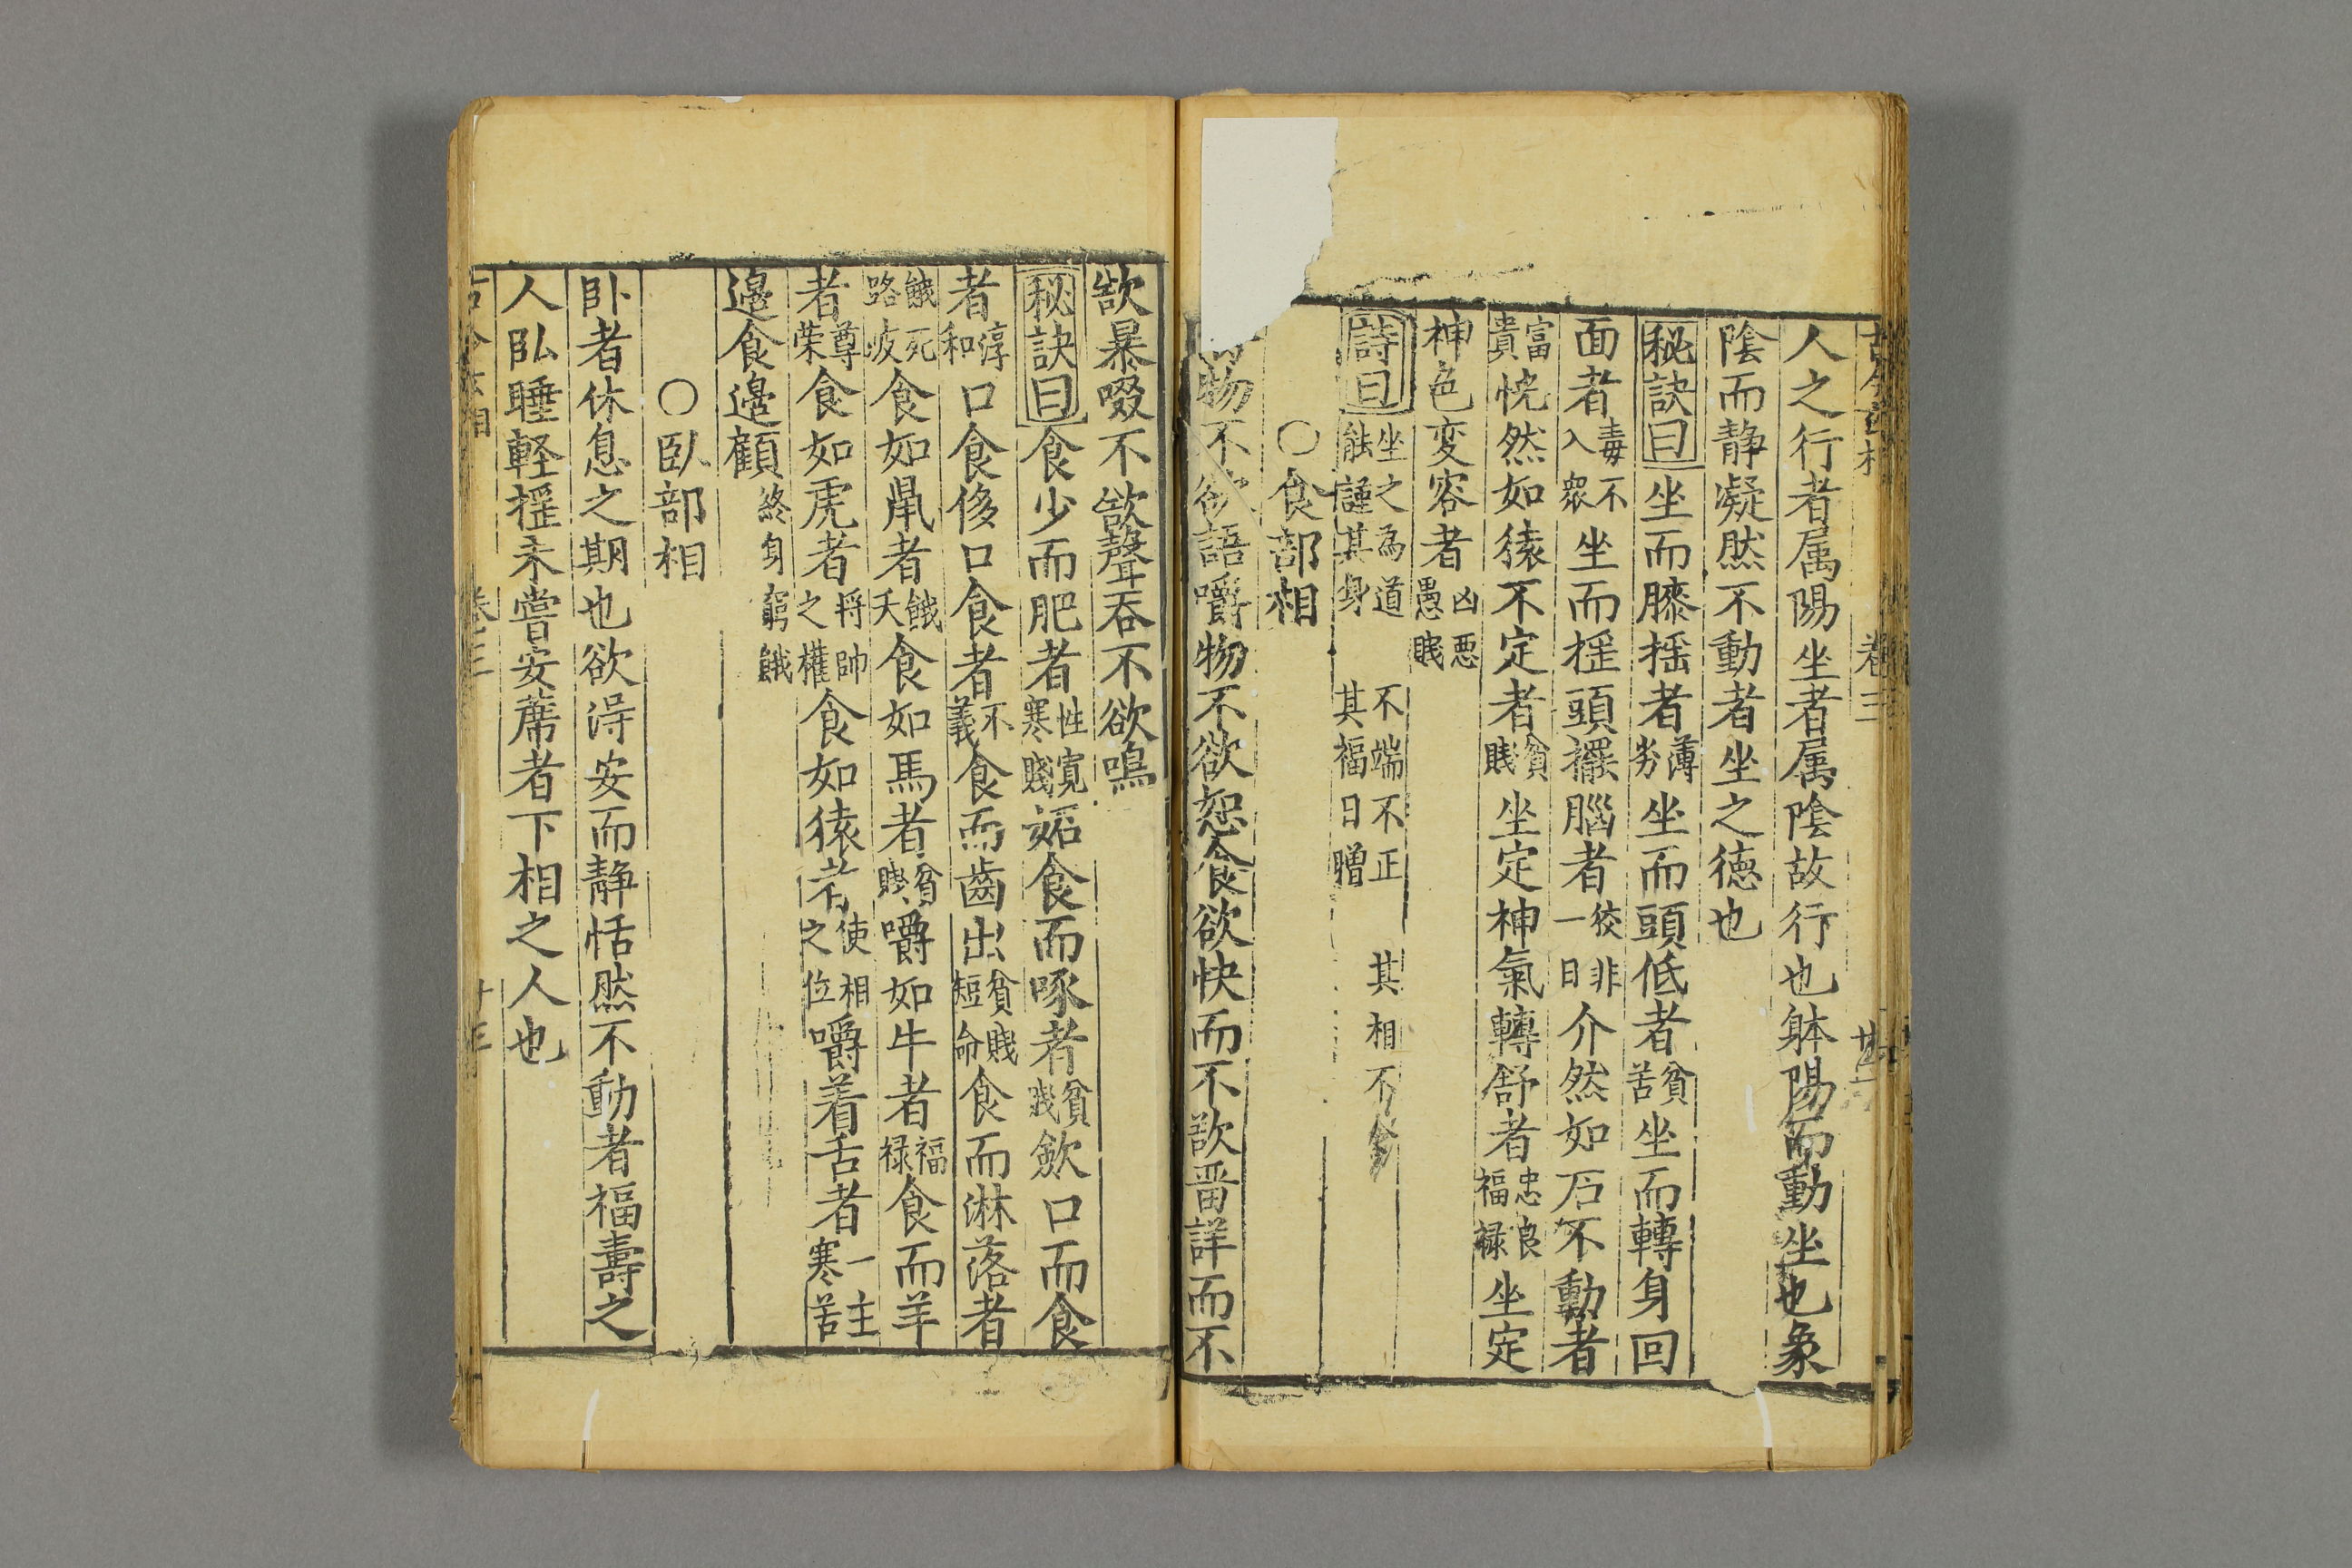 人之行者属陽坐者属陰故行也躰陽而動坐也象
陰而静凝然不動者坐之德也
秘訣曰坐而膝揺者薄劣坐而頭低者貧苦坐而轉身回
面者毒不入衆坐而揺頭擺腦者狡非一日介然如石不動者
富貴恍然如猿不定者貧賤坐定神氣轉舒者忠良福禄坐定
神色変容者凶悪愚賤
詩曰坐之為道能謹其身不端不正其福日贈其相不
○食部相
物不欲語嚼物不欲恕食欲快而不欲畨詳而不
欲暴啜不欲聲吞不欲鳴
秘訣曰食少而肥者性寛寒賤妬食而啄者貧賎歛口而食
者淳和口食侈口食者不義食而齒出貧賤短命食而淋落者
餓死路岐食如鼡者餓夭食如馬者貧賤嚼如牛者福禄食而羊
者尊荣食如虎者将帥之權食如猿者使相之位嚼着舌者一主寒苦
邊食邊顧終身窮餓
○臥部相
卧者休息之期也欲淂安而静恬然不動者福壽之
人臥睡軽揺未嘗安蓆者下相之人也
卷三